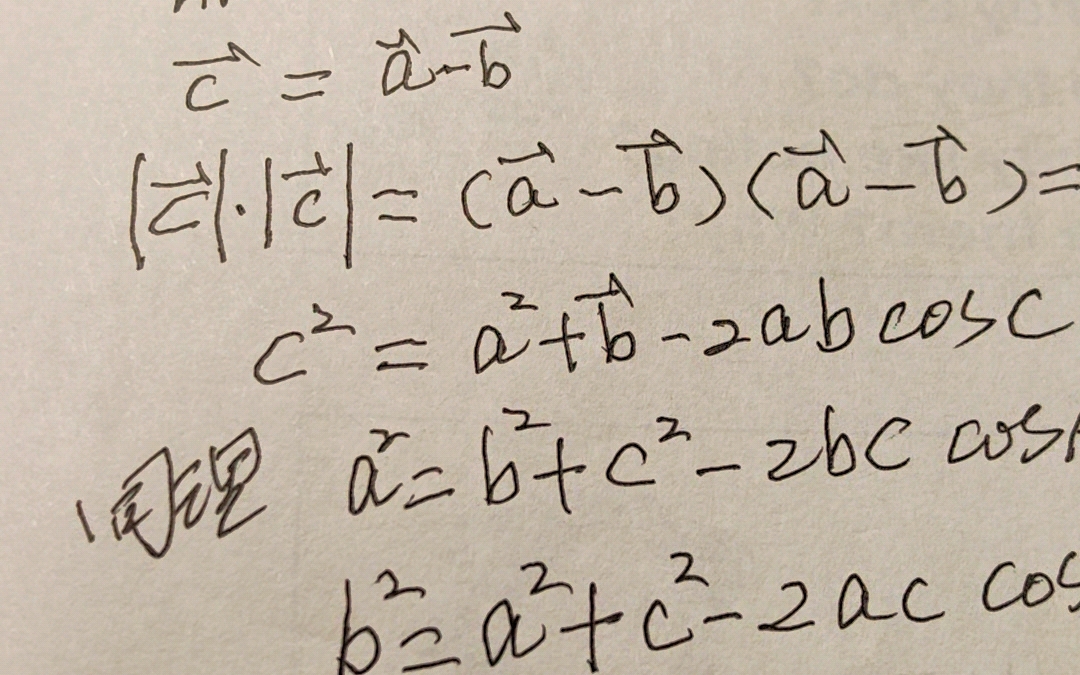 $\vec{c} = \vec{a} - \vec{b}$
$|\vec{c}| \cdot |\vec{c}| = (\vec{a} - \vec{b})(\vec{a} - \vec{b}) =$
$c^2 = a^2 + \vec{b} - 2ab \cos C$
同理 $a^2 = b^2 + c^2 - 2bc \cos$
$b^2 = a^2 + c^2 - 2ac \cos$